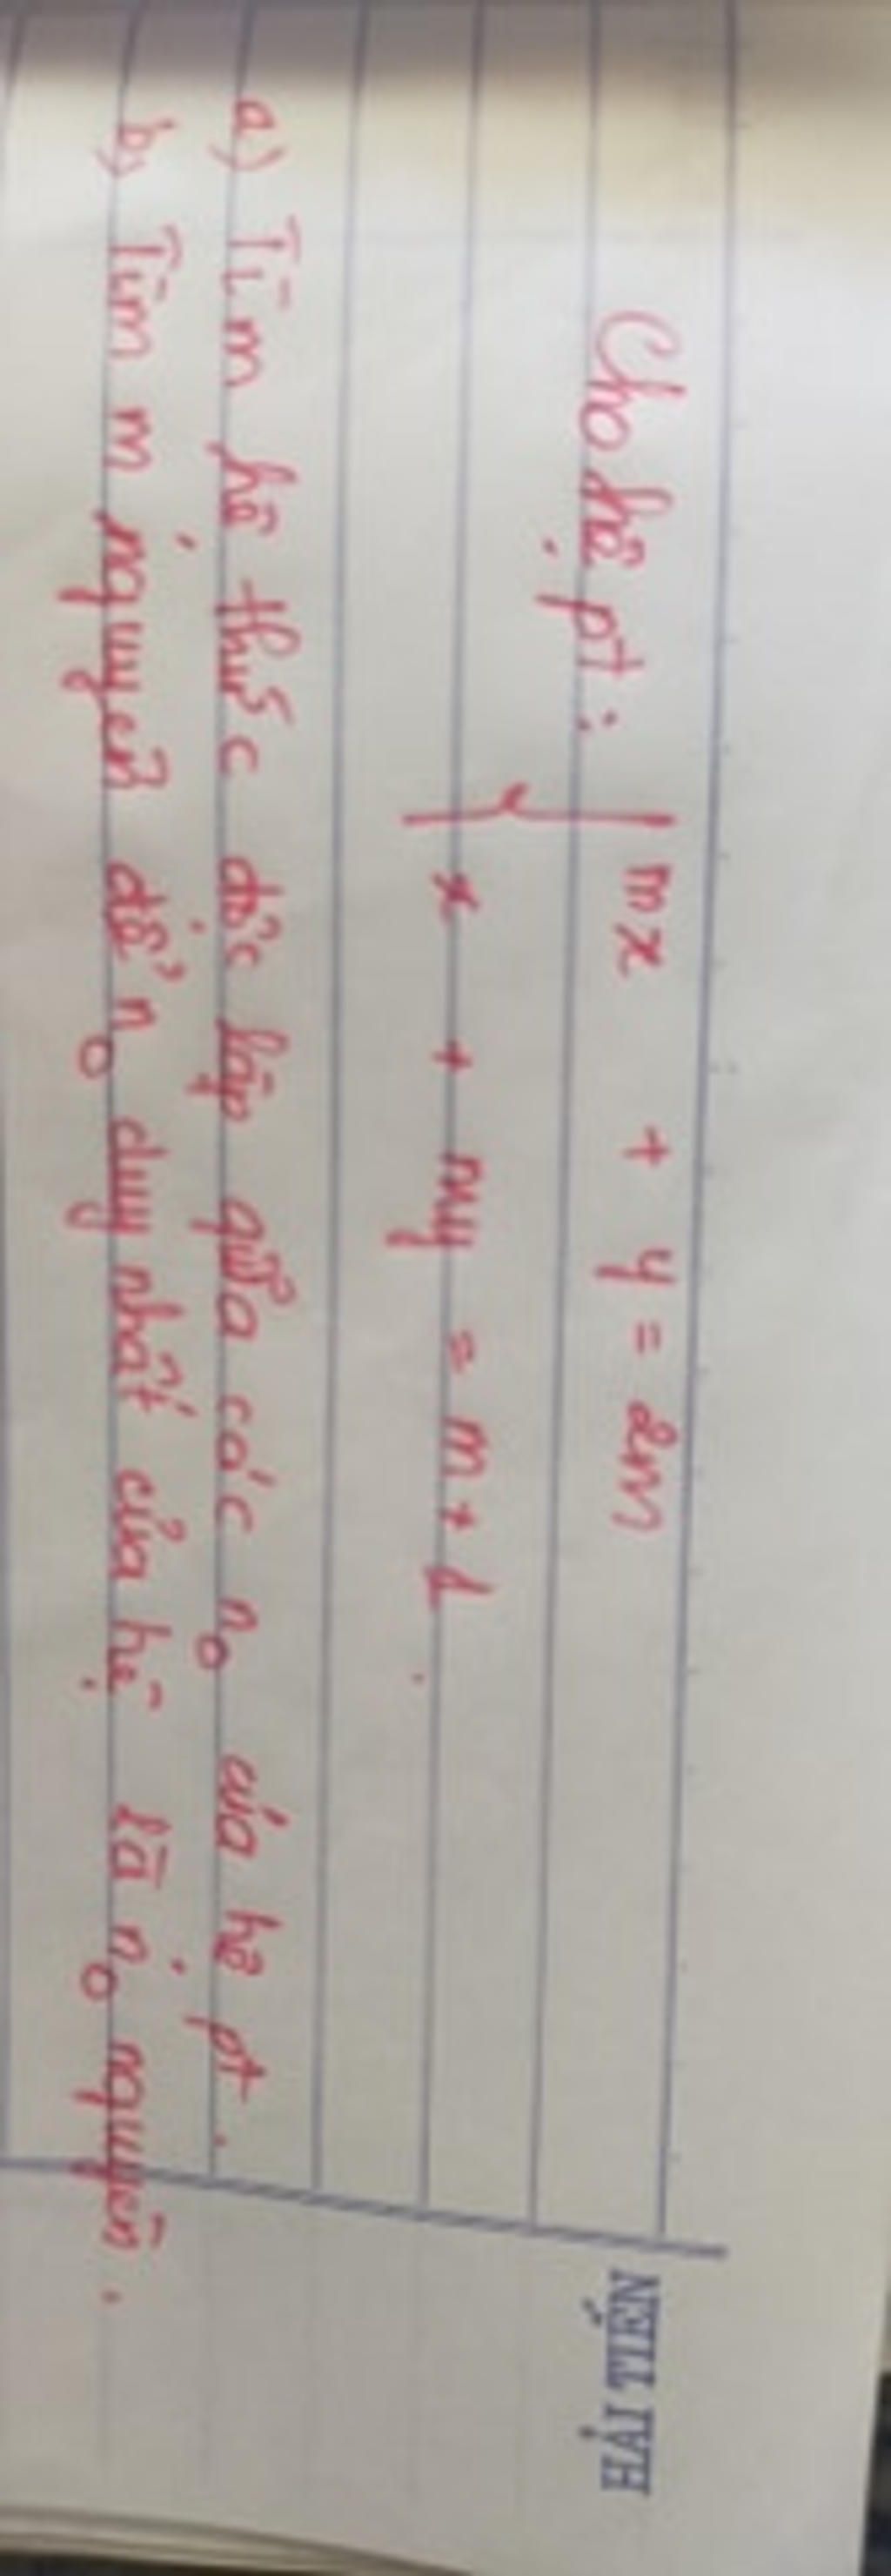 HẢI TIẾN
Cho hệ pt: { mx + y = 2m
x + my = m + 1.
a) Tìm hệ thức độc lập giữa các no của hệ pt.
b) Tìm m nguyên để no duy nhất của hệ là no nguyên.